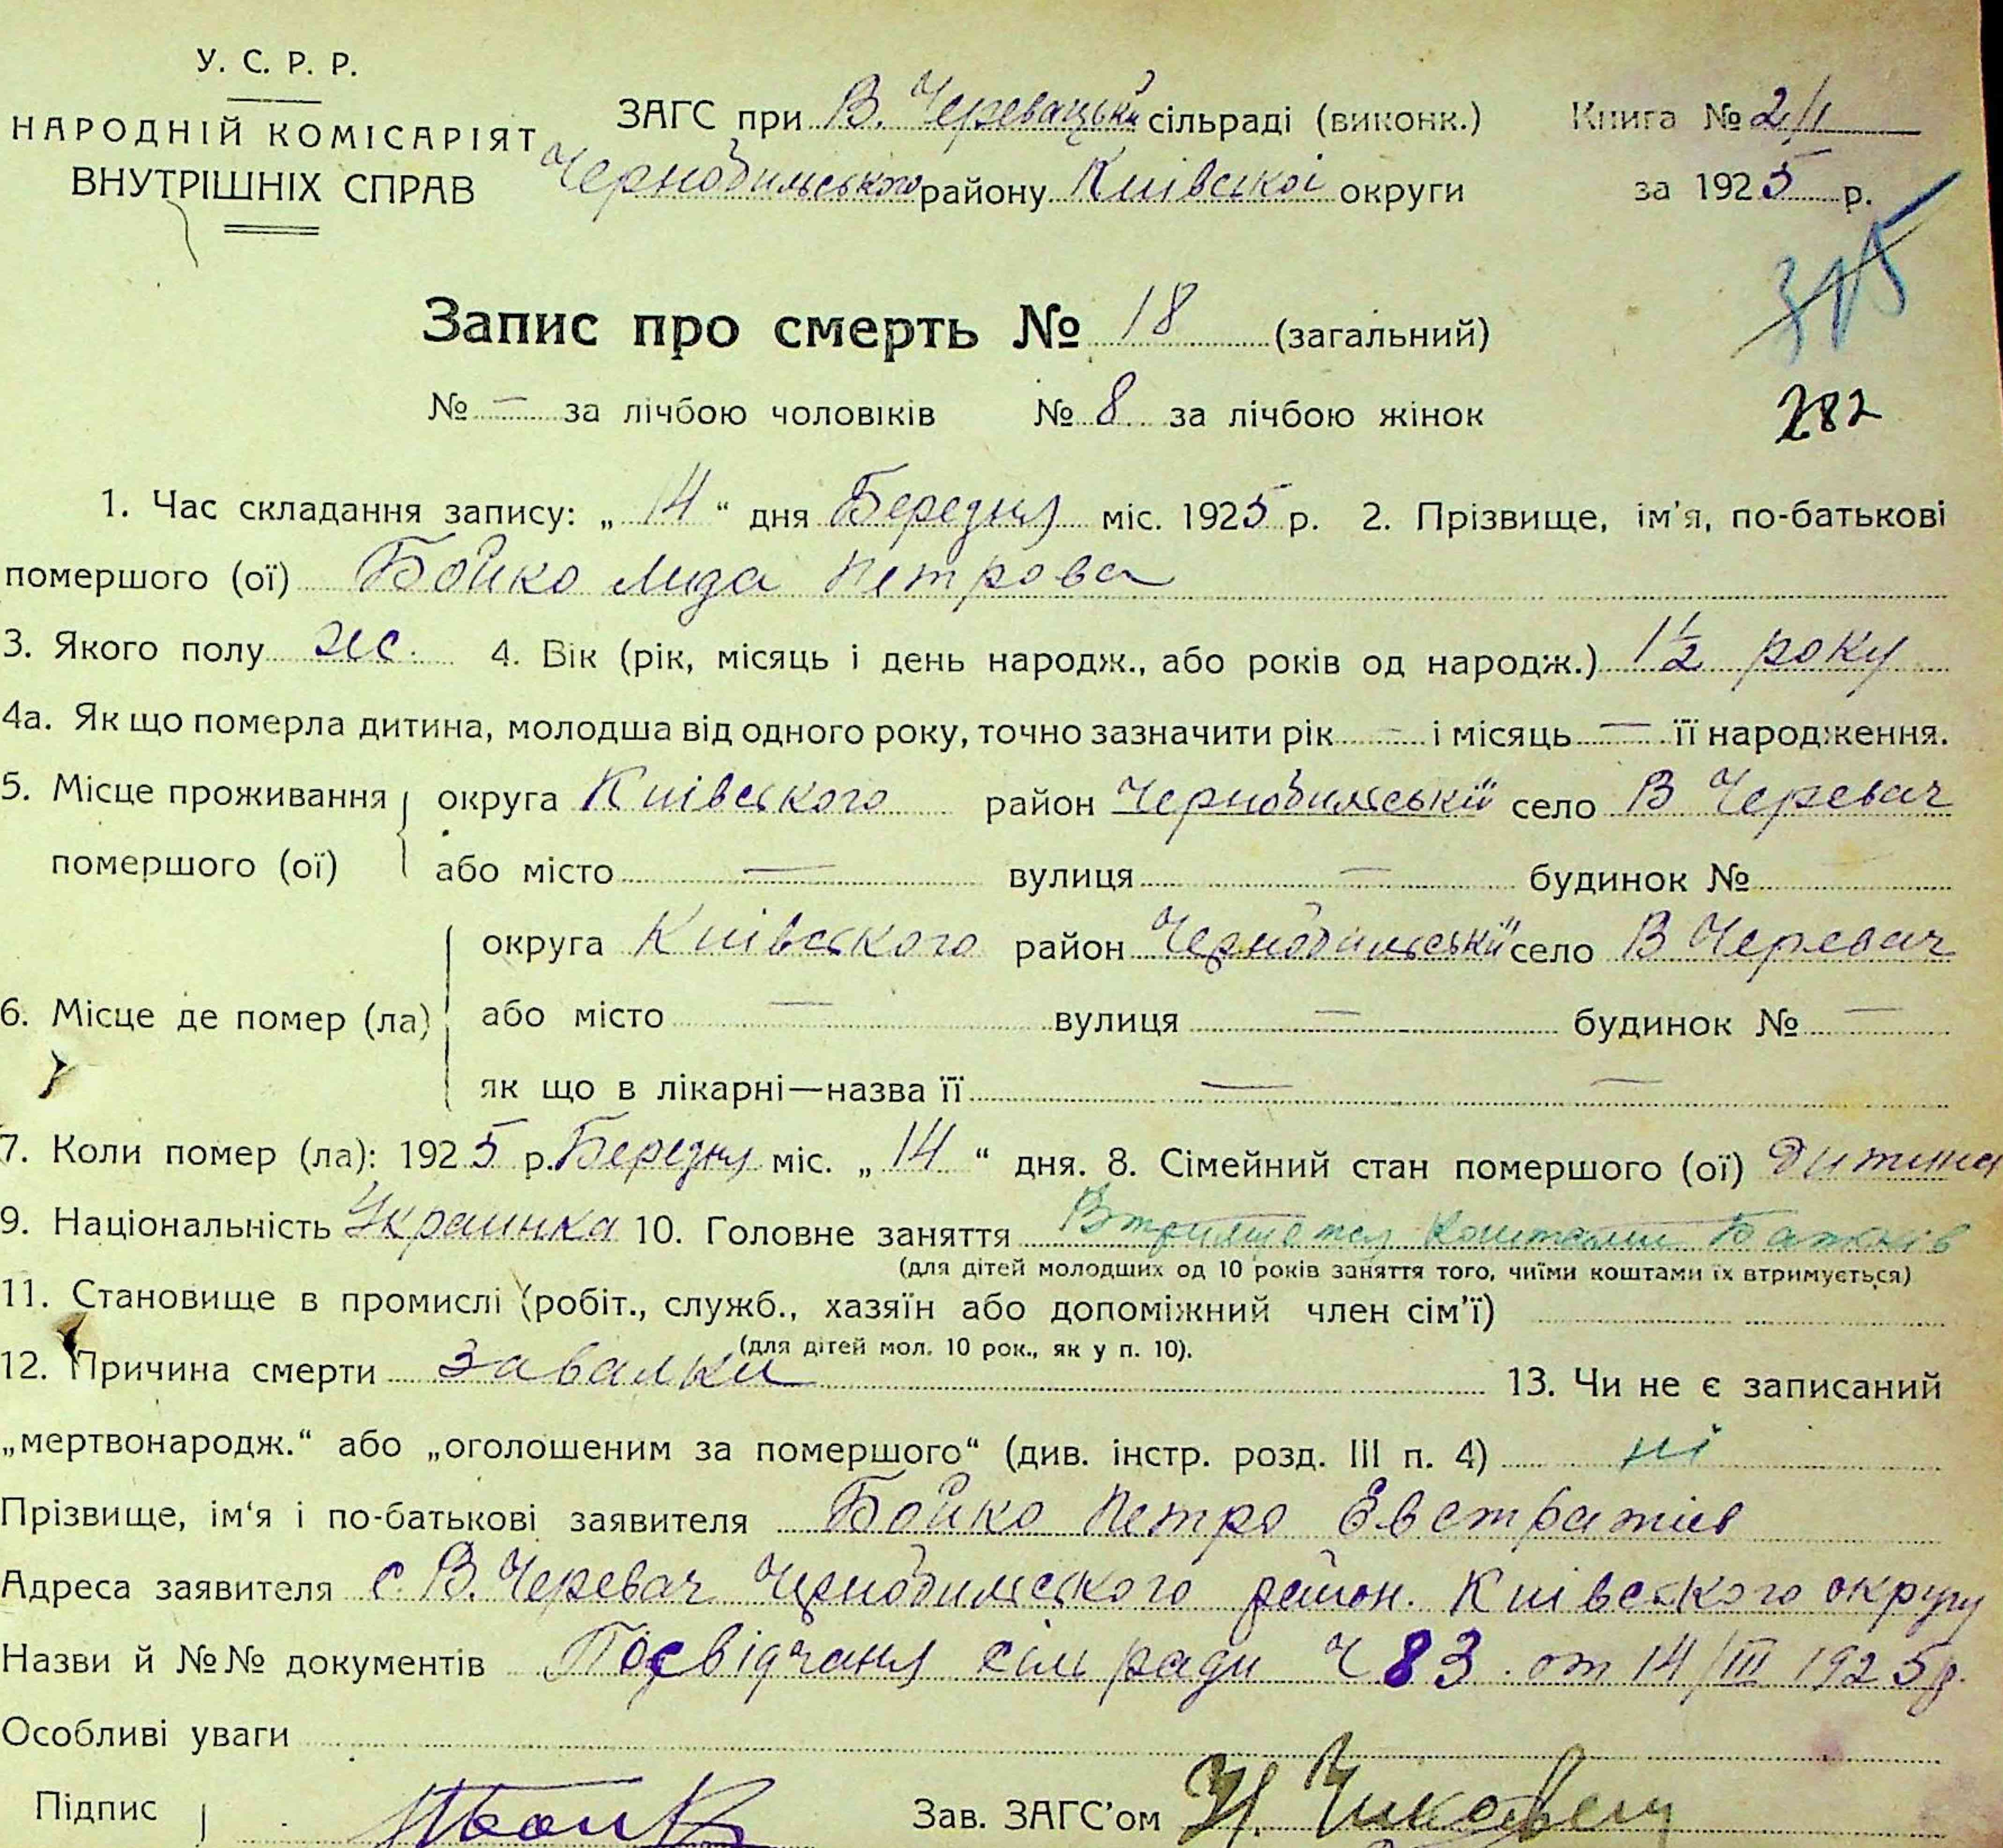 У. С. Р. Р.
НАРОДНІЙ КОМІСАРІЯТ
ВНУТРІШНІХ СПРАВ
ЗАГС при В. Черевацькій сільраді (виконк.)
Чернобильського району Київскої округи
Книга № 2/II
за 1925 р.
315
Запис про смерть № 18 (загальний)
№ — за лічбою чоловіків № 8 за лічбою жінок
282
1. Час складання запису: „14“ дня Березня міс. 1925 р. 2. Прізвище, ім'я, по-батькові
помершого (ої) Бойко Лиза Петрова
3. Якого полу жс. 4. Вік (рік, місяць і день народж., або років од народж.) 1½ року
4а. Як що померла дитина, молодша від одного року, точно зазначити рік — і місяць — її народження.
5. Місце проживання помершого (ої)
округа Київського район Чернобильській село В Черевач
або місто — вулиця — будинок №
6. Місце де помер (ла)
округа Київського район Чернобильській село В Черевач
або місто — вулиця — будинок № —
як що в лікарні—назва її — —
7. Коли помер (ла): 1925 р. Березня міс. „14“ дня. 8. Сімейний стан помершого (ої) Дитина
9. Національність Украинка 10. Головне заняття Втримуется Коштами Батьків
(для дітей молодших од 10 років заняття того, чиїми коштами їх втримується)
11. Становище в промислі (робіт., служб., хазяїн або допоміжний член сім'ї)
(для дітей мол. 10 рок., як у п. 10).
12. Причина смерти Завалки 13. Чи не є записаний
„мертвонародж.“ або „оголошеним за помершого“ (див. інстр. розд. III п. 4) ні
Прізвище, ім'я і по-батькові заявителя Бойко Петро Евстратиев
Адреса заявителя с. В. Черевач Чернобильского район. Київского округу
Назви й №№ документів Посвідчаня сільради ч 83. от 14/III 1925р.
Особливі уваги
Підпис
Зав. ЗАГС'ом